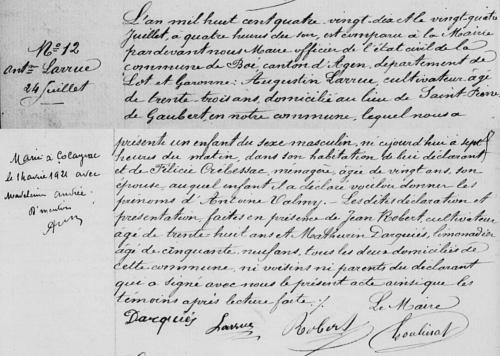 No 12
Ante Larrue
24 Juillet
L'an mil huit cent quatre-vingt-dix et le vingt-quatre
Juillet, à quatre heures du soir, est comparu à la Mairie
pardevant nous Maire officier de l'état civil de la
commune de Boé canton d'Agen, département de
Lot et Garonne: Augustin Larrue, cultivateur, âgé
de trente trois ans, domicilié au lieu de Saint-Pierre
de Gaubert en notre commune, lequel nous a
présenté un enfant du sexe masculin, né ce jourd'hui à sept
heures du matin, dans son habitation de lui déclarant
et de Félicie Crébessac, ménagère, âgée de vingt ans, son
épouse, auquel enfant il a déclaré vouloir donner les
prénoms d'Antoine Valmy. — Les dites déclaration et
présentation, faites en présence de Jean Robert, cultivateur
âgé de trente huit ans et Mathurin Darquiés, limonadier
âgé de cinquante neuf ans, tous les deux domiciliés de
cette commune, ni voisins ni parents du déclarant
qui a signé avec nous le présent acte ainsi que les
témoins après lecture faite ./.
Le Maire
Darquiés Larrue Robert
Marié à Colayrac
le 1921 avec
Madeleine